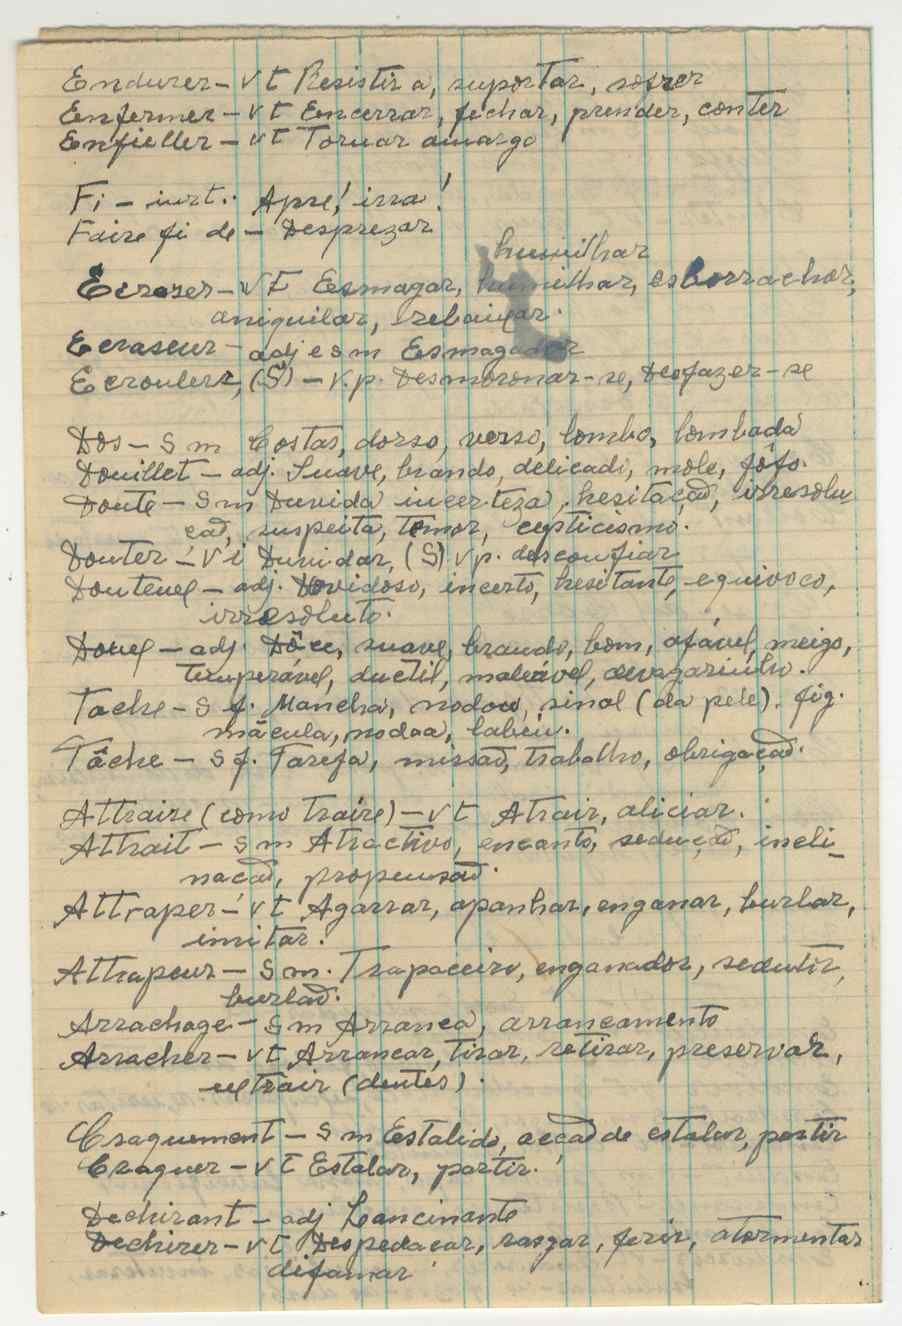 Endurer - v t Resistir a, suportar, sofrer
Enfermer - v t Encerrar, fechar, prender, conter
Enfieller - v t Tornar amargo
Fi - int. Apre! irra!
Faire fi de - Desprezar
humilhar
Ecraser - v t Esmagar, humilhar, esborrachar,
aniquilar, rebaixar.
Ecraseur - adj e s m Esmagador
Ecrouler, (S') - v.p. Desmoronar-se, Desfazer-se
Dos - s m Costas, dorso, verso, lombo, lombada
Douillet - adj. Suave, brando, delicado, mole, fôfo.
Doute - s m Duvida incerteza, hesitação, irresolu
ção, suspeita, temor, cepticismo.
Douter - v i Duvidar, (S') v p. desconfiar
Douteux - adj. Duvidoso, incerto, hesitante, equivoco,
irresoluto.
Doux - adj. Dôce, suave, brando, bom, afável, meigo,
temperável, ductil, maleável, devagarinho.
Tache - s f. Mancha, nodoa, sinal (da pele). fig.
mácula, nodoa, labéu.
Tâche - s f. Tarefa, missão, trabalho, obrigação.
Attraire (como traire) - v t Atrair, aliciar.
Attrait - s m Atractivo, encanto, sedução, incli_
nação, propensão.
Attraper - v t Agarrar, apanhar, enganar, burlar,
imitar.
Attrapeur - s m. Trapaceiro, enganador, sedutor,
burlão.
Arrachage - s m Arranca, arrancamento
Arracher - v t Arrancar, tirar, retirar, preservar,
extrair (dentes).
Craquement - s m Estalido, acção de estalar, partir
Craquer - v t Estalar, partir.
Dechirant - adj Lancinante
Dechirer - v t Despedaçar, rasgar, ferir, atormentar
difamar